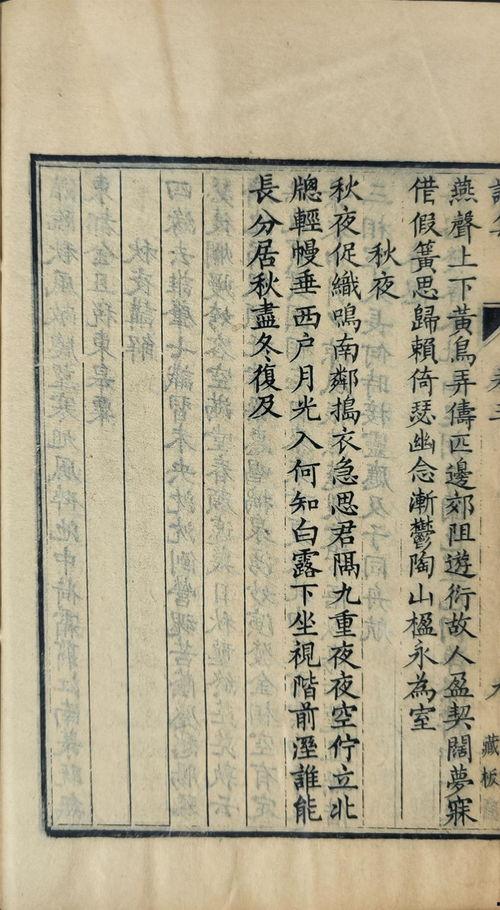 燕聲上下黃鳥弄儔匹邊郊阻遊衍故人盈契闊夢寐
借假簧思歸賴倚瑟幽念漸鬱陶山楹永為室
秋夜
秋夜促織鳴南鄰搗衣急思君隔九重夜夜空佇立北
牎輕幔垂西户月光入何知白露下坐視階前溼誰能
長分居秋盡冬復及
藏板